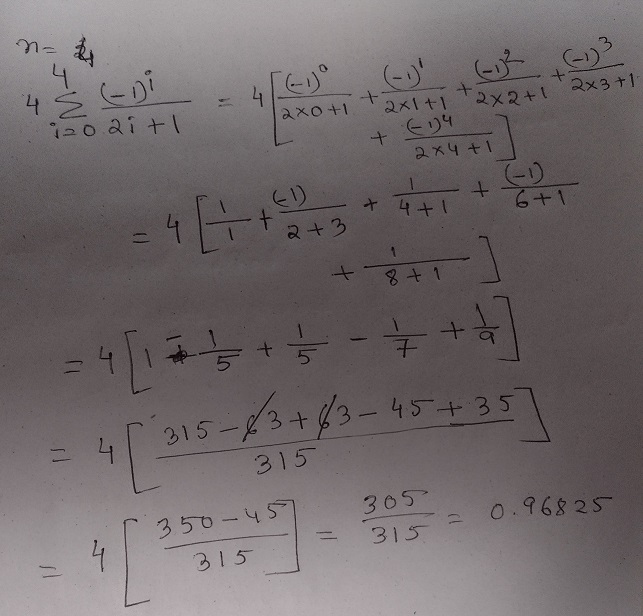 n = 4
4 4∑i=0 (-1)^i / 2i+1 = 4[(-1)^0 / 2×0+1 + (-1)^1 / 2×1+1 + (-1)^2 / 2×2+1 + (-1)^3 / 2×3+1
+ (-1)^4 / 2×4+1]
= 4[1/1 + (-1) / 2+3 + 1 / 4+1 + (-1) / 6+1
+ 1 / 8+1]
= 4[1 - 1/5 + 1/5 - 1/7 + 1/9]
= 4[315 - 63 + 63 - 45 + 35 / 315]
= 4[350 - 45 / 315] = 305 / 315 = 0.96825